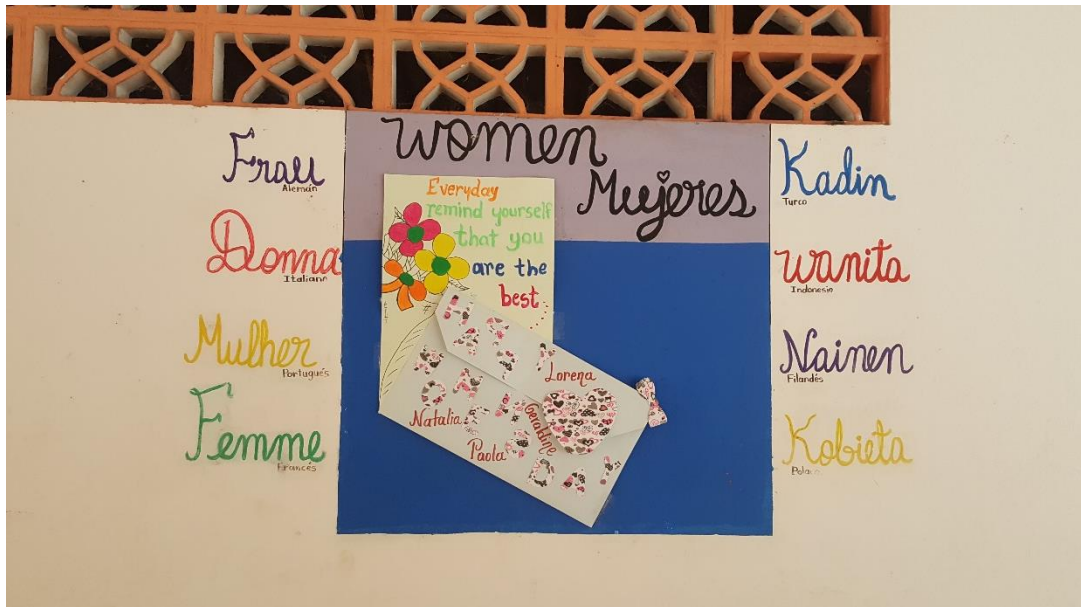 Women
Mujeres
Frau
Alemán
Donna
Italiano
Mulher
Portugués
Femme
Francés
Everyday
remind yourself
that you
are the
best
Lorena
Natalia
Geraldine
Paola
Kadin
Turco
Wanita
Indonesio
Nainen
Filandés
Kobieta
Polaco